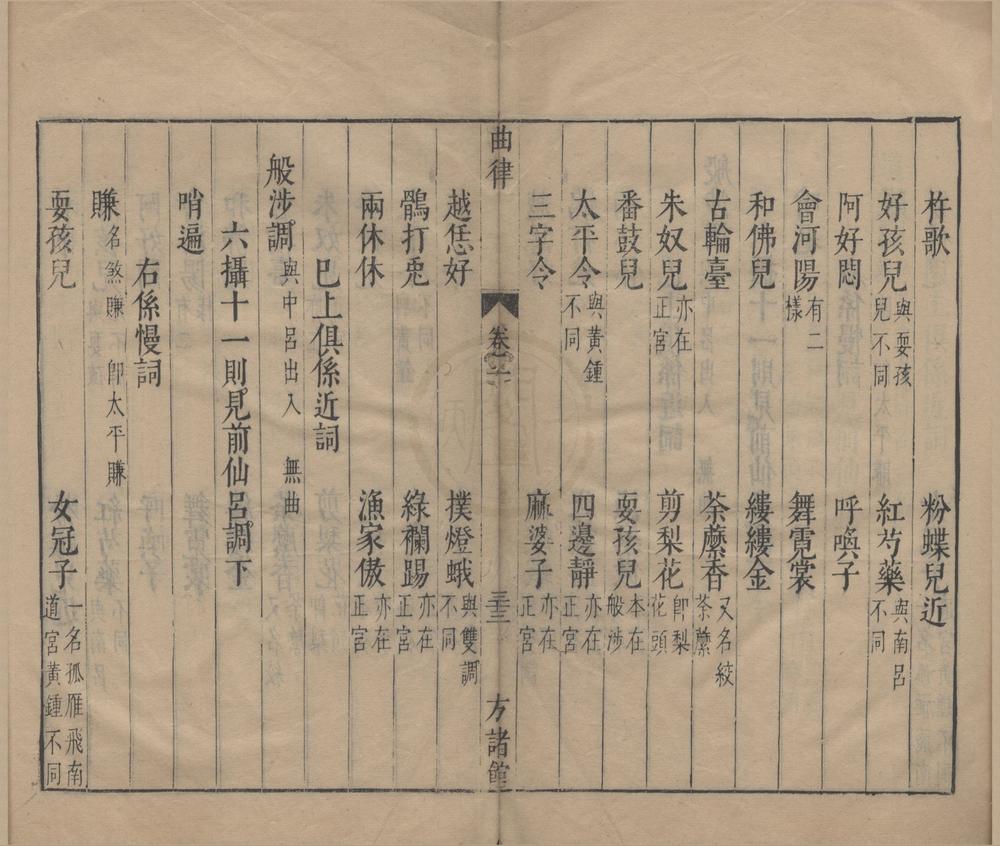 杵歌　粉蝶兒近
好孩兒與耍孩兒不同　紅芍藥與南呂不同
阿好悶　呼喚子
會河陽有二樣　舞霓裳
和佛兒　縷縷金
古輪臺　荼蘼香又名絞荼蘼
朱奴兒亦在正宮　剪梨花卽梨花頭
番鼓兒　耍孩兒本在般涉
太平令與黃鍾不同　四邊靜亦在正宮
三字令　麻婆子亦在正宮
曲律　卷一　三十三　方諸館
越恁好　撲燈蛾與雙調不同
鶻打兎　綠襴踢亦在正宮
兩休休　漁家傲亦在正宮
巳上俱係近詞
般涉調與中呂出入　無曲
六攝十一則見前仙呂調下
哨遍
右係慢詞
賺名煞賺　卽太平賺
耍孩兒　女冠子一名孤雁飛南道宮黃鍾不同